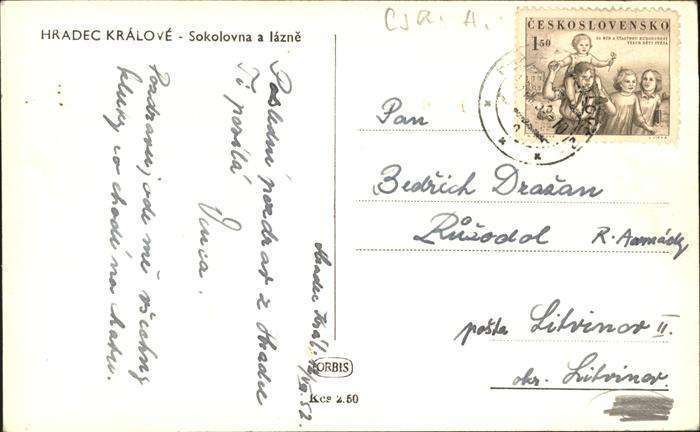 HRADEC KRÁLOVÉ - Sokolovna a lázně
ČSR. A.
ČESKOSLOVENSKO
1,50
Poslední pozdrav z Hradce
Ti posílá
Vinca.
Pozdravuj ode mě všechny
kluky co chodí na
Hradec Král. 52.
ORBIS
Kčs 2.50
Pan
Bedřich Dražan
Růžodol R. Armády
pošta Litvínov II.
okr. Litvínov.